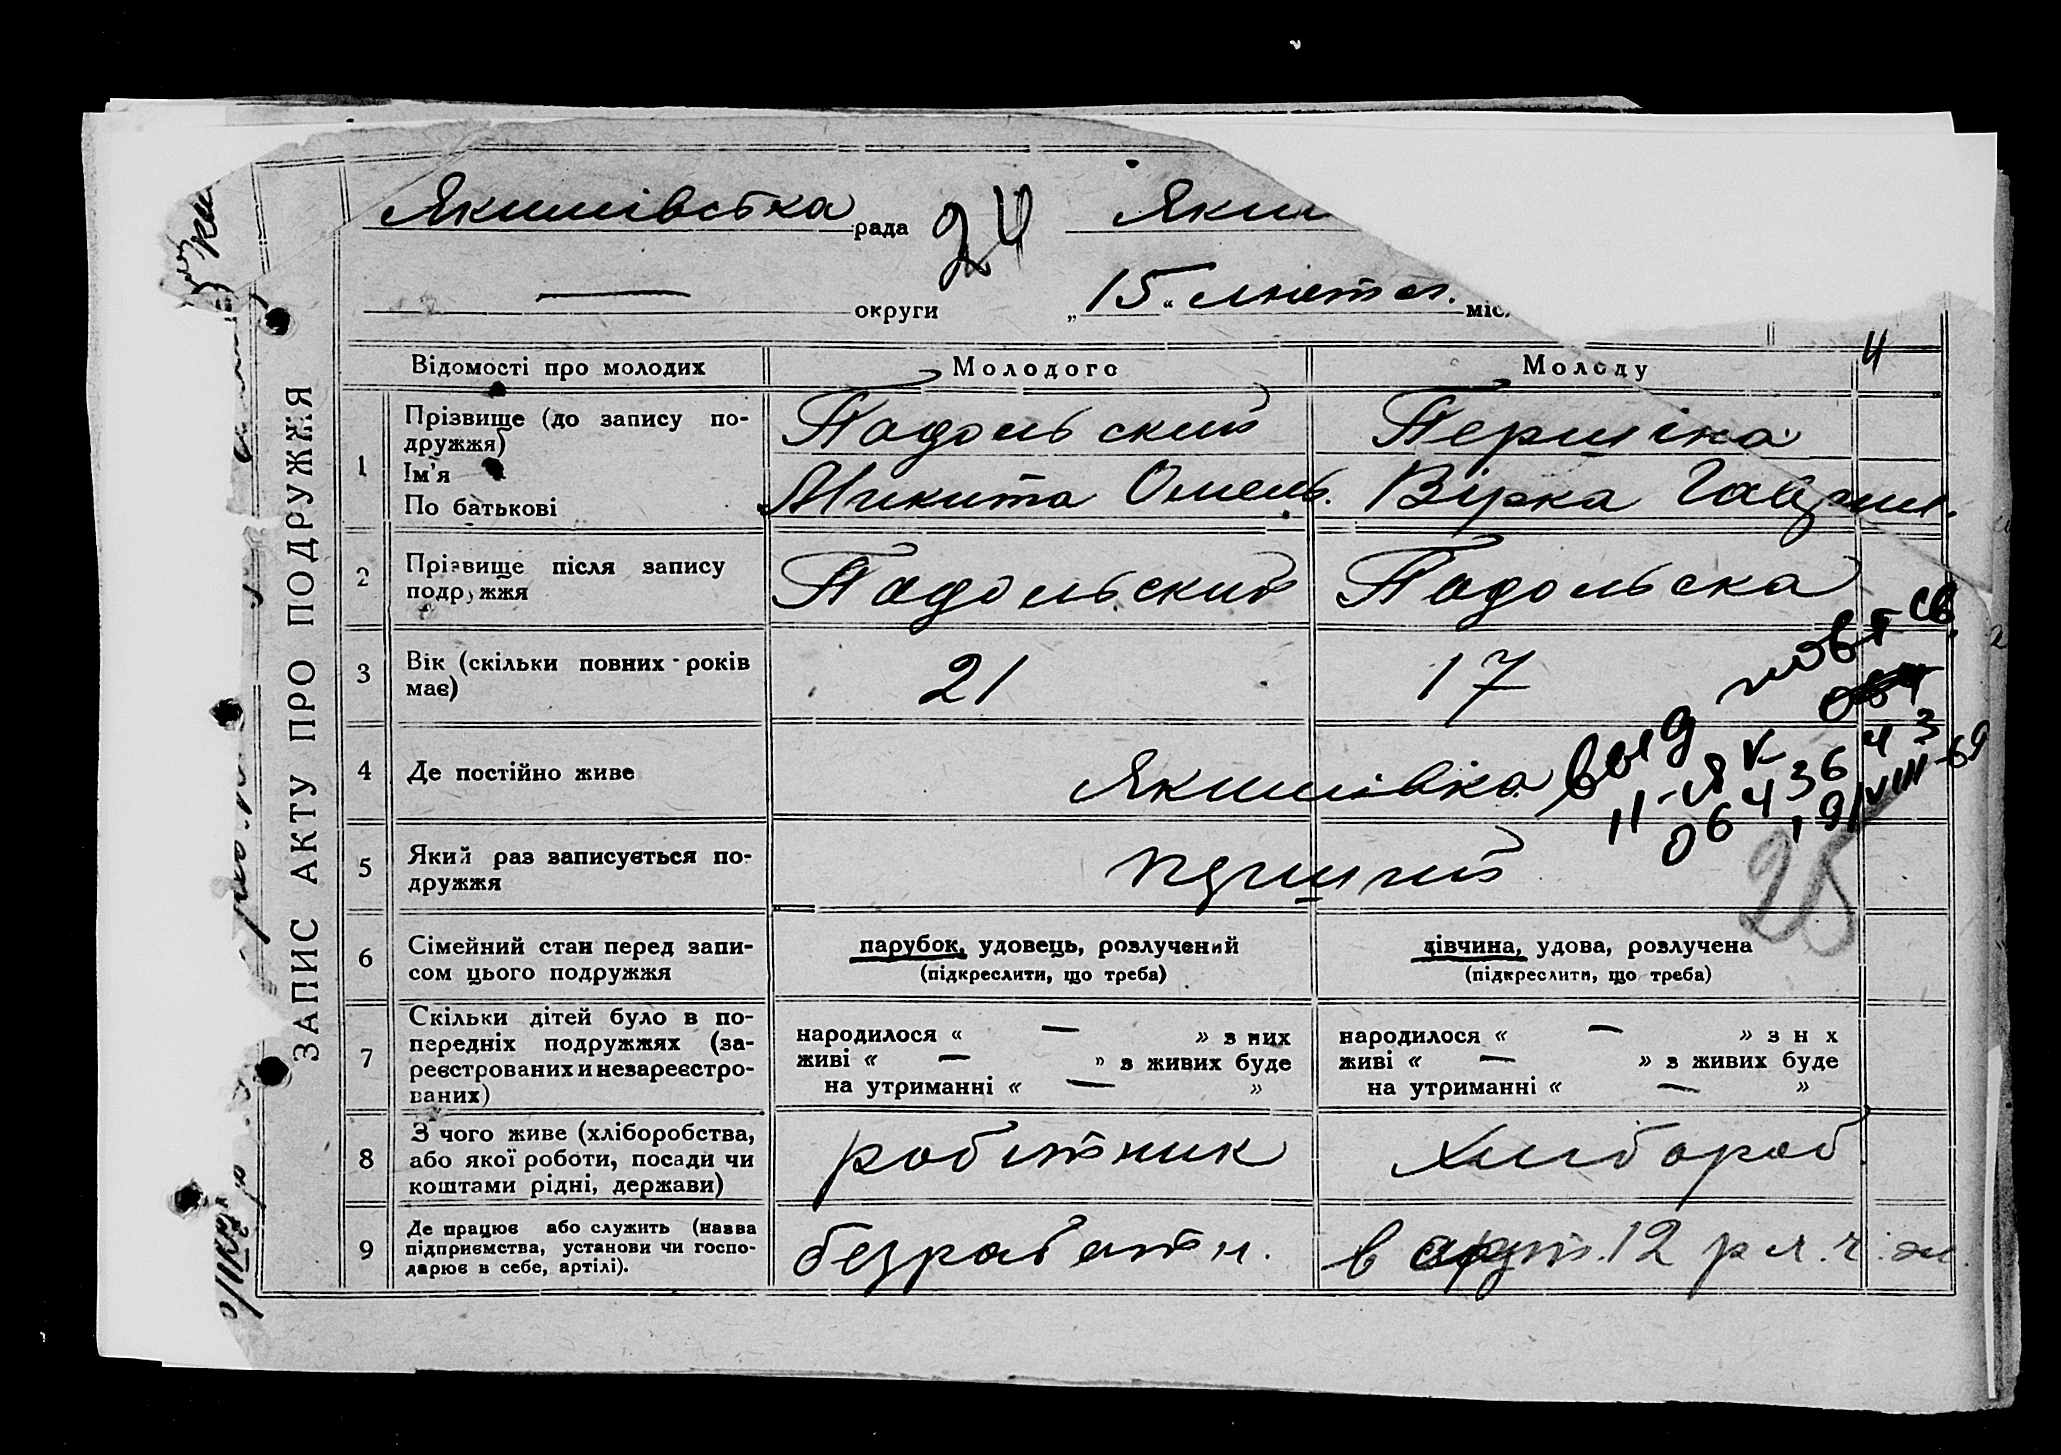 ЗАПИС АКТУ ПРО ПОДРУЖЖЯ
Якимівська рада 24 Яким
округи „15“ лютого міс.
Відомості про молодих Молодого Молоду 4
1 Прізвище (до запису по-
дружжя) Падольский Першіна
Ім'я
По батькові Микита Омель. Вірка Гаврил.
2 Прізвище після запису
подружжя Падольский Падольска
3 Вік (скільки повних років
має) 21 17
повт св.
4 Де постійно живе Якимівка
выд
II-ЯК
064364
9/VIII-69
25
5 Який раз записується по-
дружжя перший
6 Сімейний стан перед запи-
сом цього подружжя
парубок, удовець, розлучений
(підкреслити, що треба)
дівчина, удова, розлучена
(підкреслити, що треба)
7 Скільки дітей було в по-
передніх подружжях (за-
реєстрованих и незареєстро-
ваних)
народилося « — » з них
живі « — » з живих буде
на утриманні « — »
народилося « — » з н х
живі « — » з живих буде
на утриманні « — »
8 З чого живе (хліборобства,
або якої роботи, посади чи
коштами рідні, держави)
робітник хлібороб.
9 Де працює або служить (назва
підприємства, установи чи госпо-
дарює в себе, артілі).
безработн. в арт. 12 р